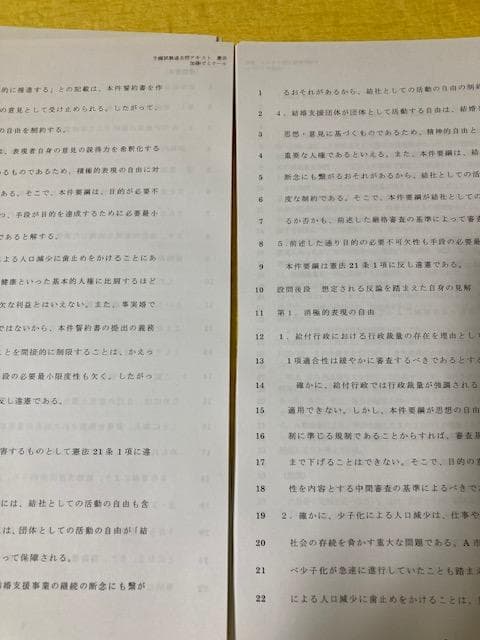 予備試験過去問テキスト 憲法
加藤ゼミナール
的に推進する」との記載は、本件誓約書を作
の意見として受け止められる。したがって、
の自由を制約する。
は、表現者自身の意見の説得力を希釈化する
るものであるため、積極的表現の自由に対
である。そこで、本件要綱は、目的が必要不
つ、手段が目的を達成するために必要最小
であると解する。
による人口減少に歯止めをかけることにあ
健康といった基本的人権に比肩するほど
欠な利益とはいえない。また、事実婚で
ではないから、本件誓約書の提出の義務
ことを間接的に制限することは、かえっ
手段の必要最小限度性も欠く。したがっ
反し違憲である。
害するものとして憲法21条1項に違
には、結社としての活動の自由も含
は、団体としての活動の自由が「結
って保障される。
結婚支援事業の継続の断念にも繋が
1 るおそれがあるから、結社としての活動の自由の制約
2 4．結婚支援団体が団体として活動する自由は、結婚
3 思想・意見に基づくものであるため、精神的自由と
4 重要な人権であるといえる。また、本件要綱は、結
5 断念にも繋がるおそれがあるから、結社としての活
6 度な制約である。そこで、結社としての自由を侵害す
7 るか否かも、前述した厳格審査の基準によって審査
8 5．前述した通り目的の必要不可欠性も手段の必要最
9 本件要綱は憲法21条1項に反し違憲である。
10 設問後段 想定される反論を踏まえた自身の見解
11 第1．消極的表現の自由
12 1．給付行政における行政裁量の存在を理由として
13 1項適合性は緩やかに審査するべきであるとす
14 確かに、給付行政では行政裁量が強調される
15 適用できない。しかし、本件要綱が思想の自由
16 制に準じる規制であることからすれば、審査基
17 まで下げることはできない。そこで、目的の重
18 性を内容とする中間審査の基準によるべきで
19 2．確かに、少子化による人口減少は、仕事や
20 社会の存続を脅かす重大な問題である。A市
21 べ少子化が急速に進行していたことも踏ま
22 による人口減少に歯止めをかけることは、